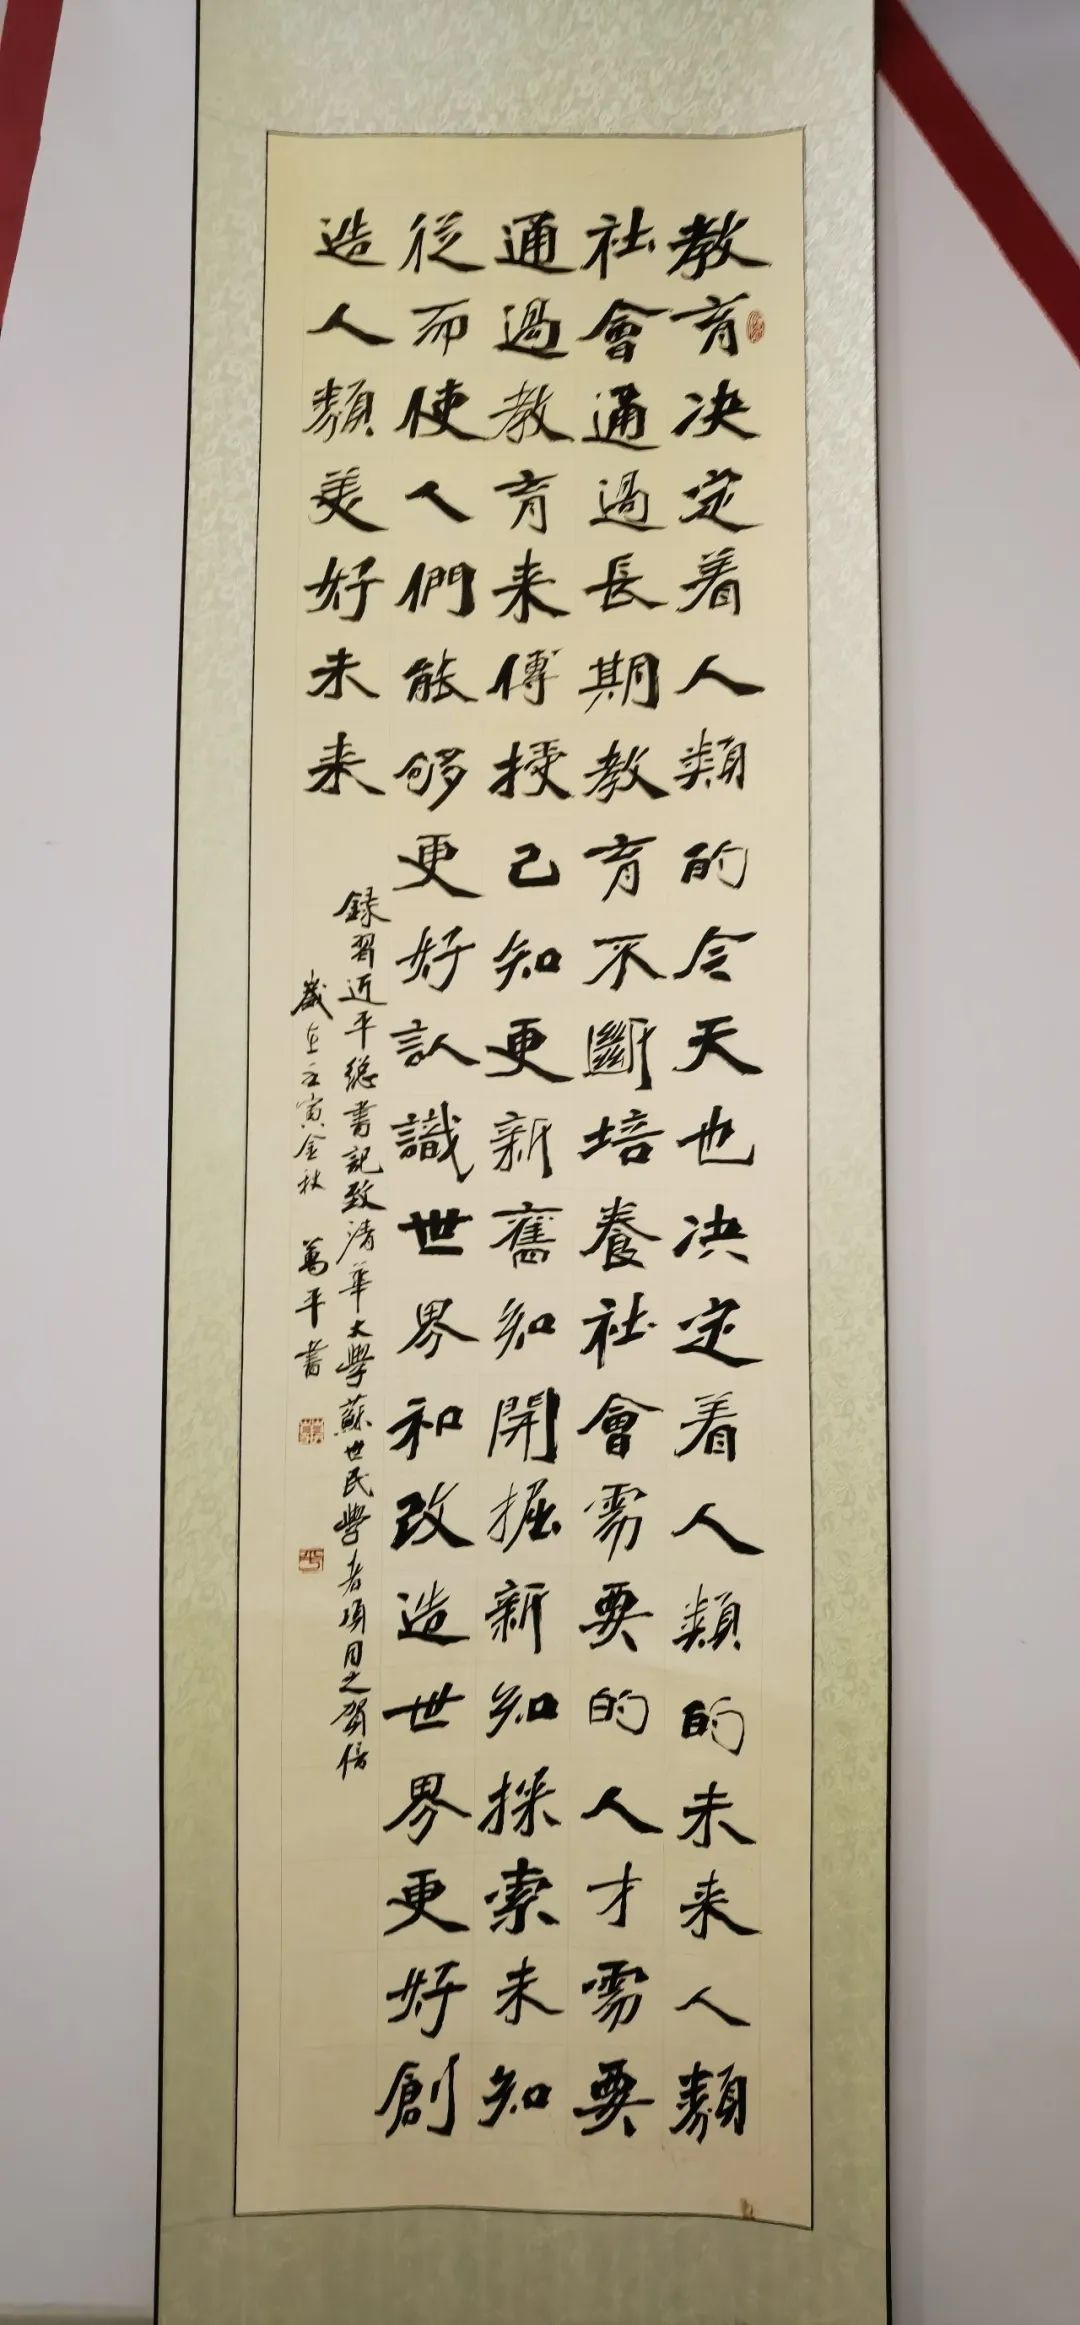 教育决定着人類的今天也决定着人類的未来人類
社會通過長期教育不斷培養社會需要的人才需要
通過教育来傳授己知更新舊知開掘新知探索未知
從而使人們能够更好認識世界和改造世界更好創
造人類美好未来
録習近平總書記致清華大學蘇世民學者項目之賀信
歲在壬寅金秋 萬平書